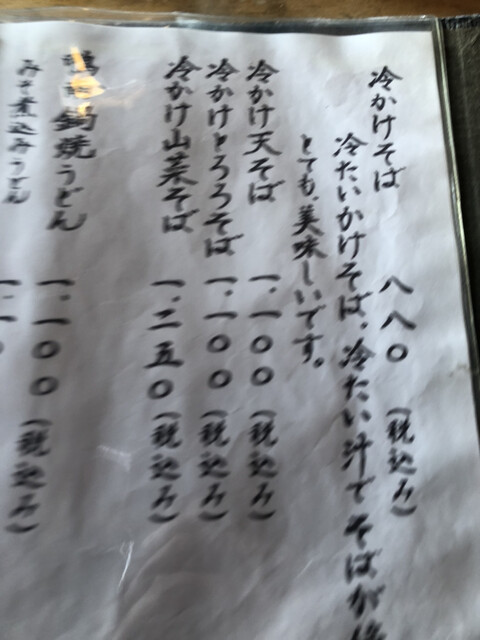 冷かけそば 八八〇(税込み)
冷たいかけそば、冷たい汁でそばが
とても、美味しいです。
冷かけ天そば 一、一〇〇(税込み)
冷かけとろろそば 一、一〇〇(税込み)
冷かけ山菜そば 一、二五〇(税込み)
鍋焼うどん 一、一〇〇(税込み)
みそ煮込みうどん